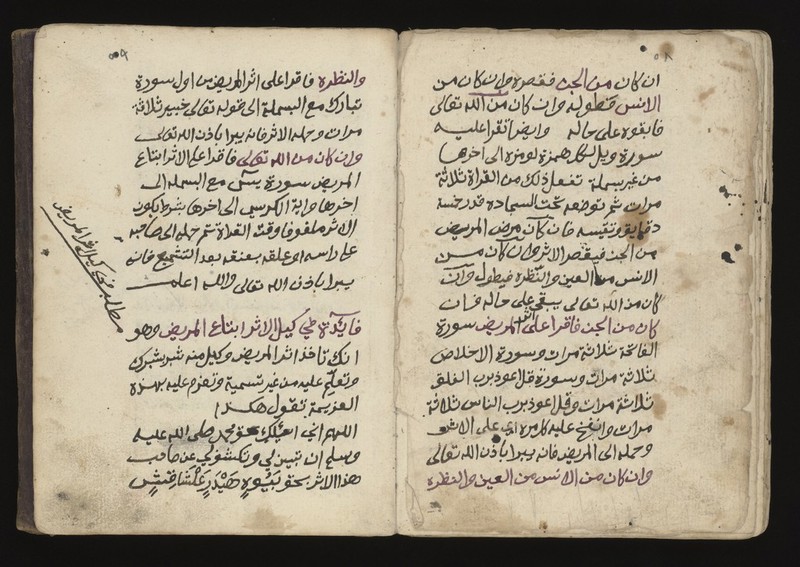 ان كان من الجن فقصره وان كان من
الانس فطوله وان كان من الله تعالى
فابقوه على حاله وايضا تقرا عليه
سورة ويل لكل همزة لمزه الى اخرها
من غير بسملة تفعل ذلك من القراة ثلاثة
مرات ثم توضعه تحت السجادة قدر خمسة
دقايق وتقيسه فان كان مرض المريض
من الجن فيقصر الاثر وان كان من
الانس من العين والنظره فيطول وان
كان من الله تعالى يبقى على حاله فان
كان من الجن فاقرا على اثر المريض سورة
الفاتحة ثلاثة مرات وسورة الاخلاص
ثلاثة مرات وسورة قل اعوذ برب الفلق
ثلاثة مرات وقل اعوذ برب الناس ثلاثة
مرات وانفخ عليه كل مره اي على الاثر
وحمله الى المريض فانه يبرا باذن الله تعالى
وان كان من الانس من العين والنظره
والنظره فاقرا على اثر المريض من اول سورة
تبارك مع البسملة الى قوله تعالى خبير ثلاثة
مرات وحمله الاثر فانه يبرا باذن الله تعالى
وان كان من الله تعالى فاقرا على الاثر ابتاع
المريض سورة يس مع البسمله الى
اخرها واية الكرسي الى اخرها بشرط يكون
الاثر ملفوفا وقت القراة ثم حمله الى صاحبه
على راسه او علقه بعنقه بعد التشميع فانه
يبرا باذن الله تعالى والله اعلم
فايدة في كيل الاثر ابتاع المريض وهو
انك تاخذ اثر المريض وكيل منه شبر بشبرك
وتعلم عليه من غير تسمية وتعزم عليه بهذه
العزيمة تقول هكذا
اللهم اني اسئلك بحق محمد صلى الله عليه
وسلم ان تبين لي وتكشف لي عن صاحب
هذا الاثر بحق
مطلب في كيل اثر المريض